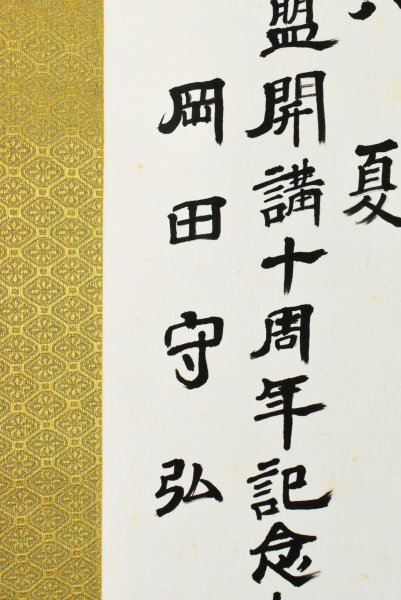 夏
盟開講十周年記念
岡田守弘